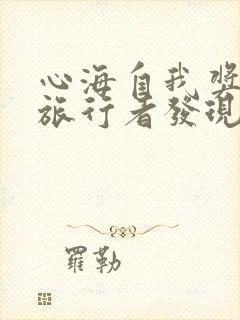 心海自我獎
旅行者發現
羅勒